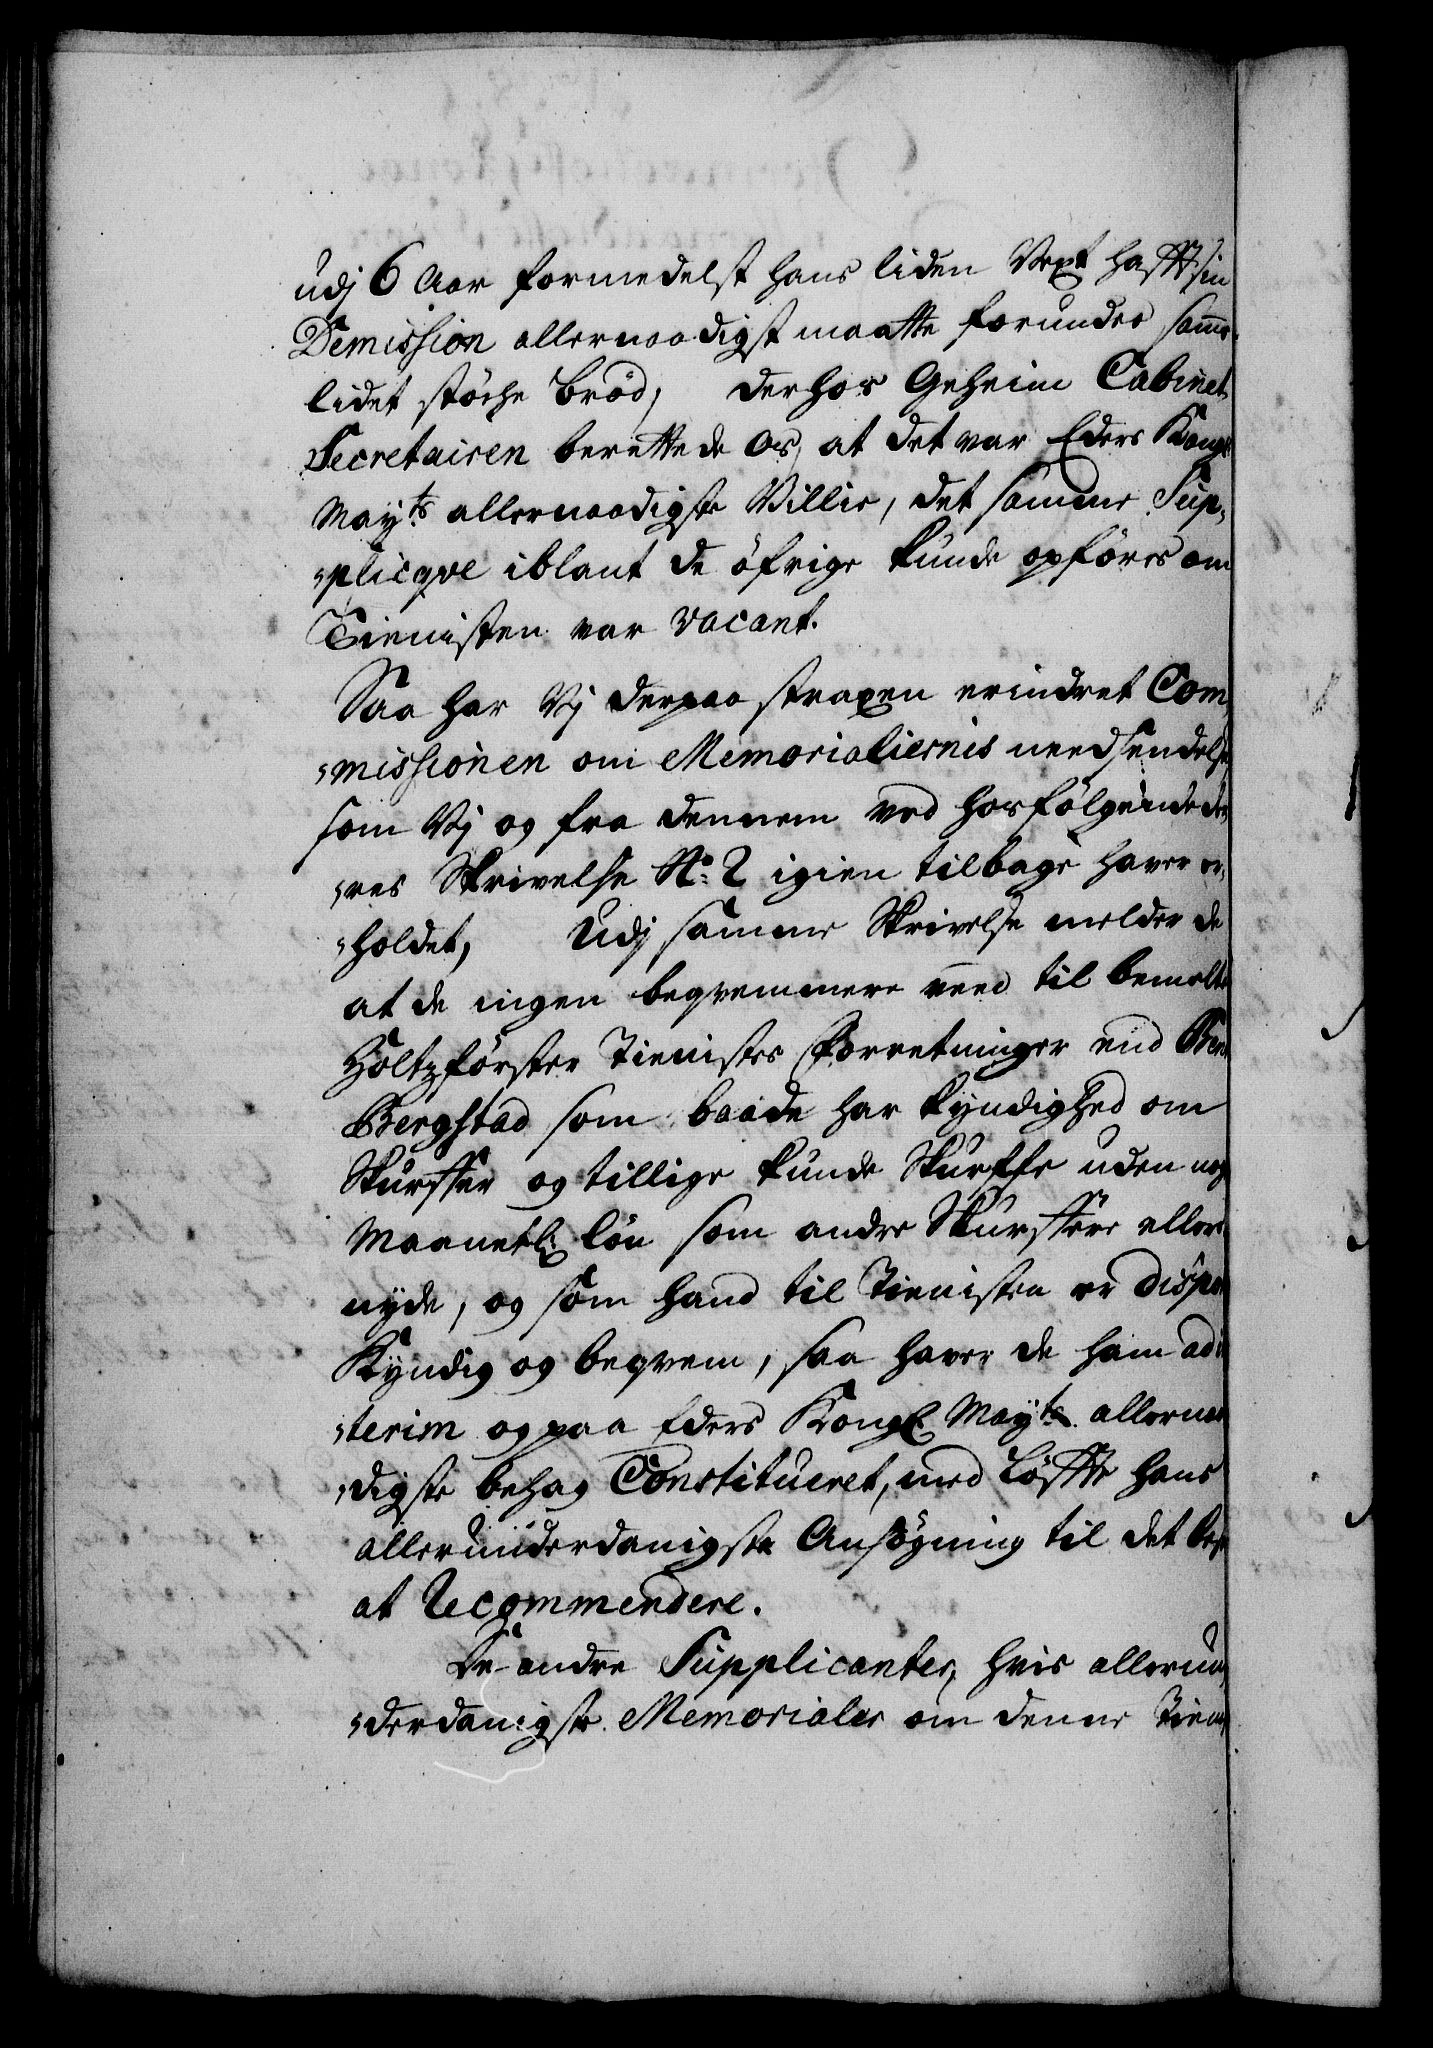 udj 6 Aar formedelst hans liden Vext hafft sin
Demission allernaadigst maatte forundes samme
lidet støche brød, derhos Geheim Cabinet
Secretairen berettede os, at det var Eders Kongl
Mayts allernaadigste Villie, det samme Sup-
plicqve iblant de öfrige kunde opföres om
Tienisten var vacant.
Saa har Vj derpaa straxen erindret Com-
missionen om Memorialiernis needsendelse
som Vj og fra dennem ved hosfölgende de-
res Skrivelse No: 2 igien tilbage haver er-
holdet, Udj samme Skrivelse melder de
at de ingen beqvemmere veed til bemelte
Holtzförster Tienistes Forretninger end
Bergstad som baade har kyndighed om
Skurffer og tillige kunde Skurffe uden nog
Maanetl: lön som andre Skurffere ellers
nyde, og som hand til Tienisten er
Kyndig og beqvem, saa haver de ham ad in-
terim og paa Eders Kongl: Mayts allernaa-
digste behag Constitueret, med Löffte hans
allerunderdanigste Ansögning til det beste
at Recommendere.
De andre Supplicanter, hvis allerun-
derdanigste Memorialer om denne Tieni-